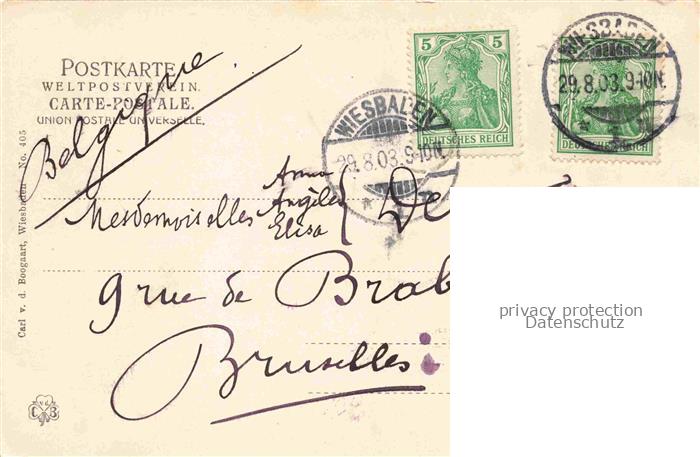 POSTKARTE
WELTPOSTVEREIN.
CARTE-POSTALE.
UNION POSTALE UNIVERSELLE.
Belgique
5 5
DEUTSCHES REICH
WIESBADEN
29.8.03.9-10N.
WIESBADEN
29.8.03.9-10N.
DEUTSCHES REICH
Mesdemoiselles Anna
Angèle
Elisa { De
9 rue de Brab
Bruxelles
Carl v. d. Boogaart, Wiesbaden No. 405
C B
privacy protection
Datenschutz